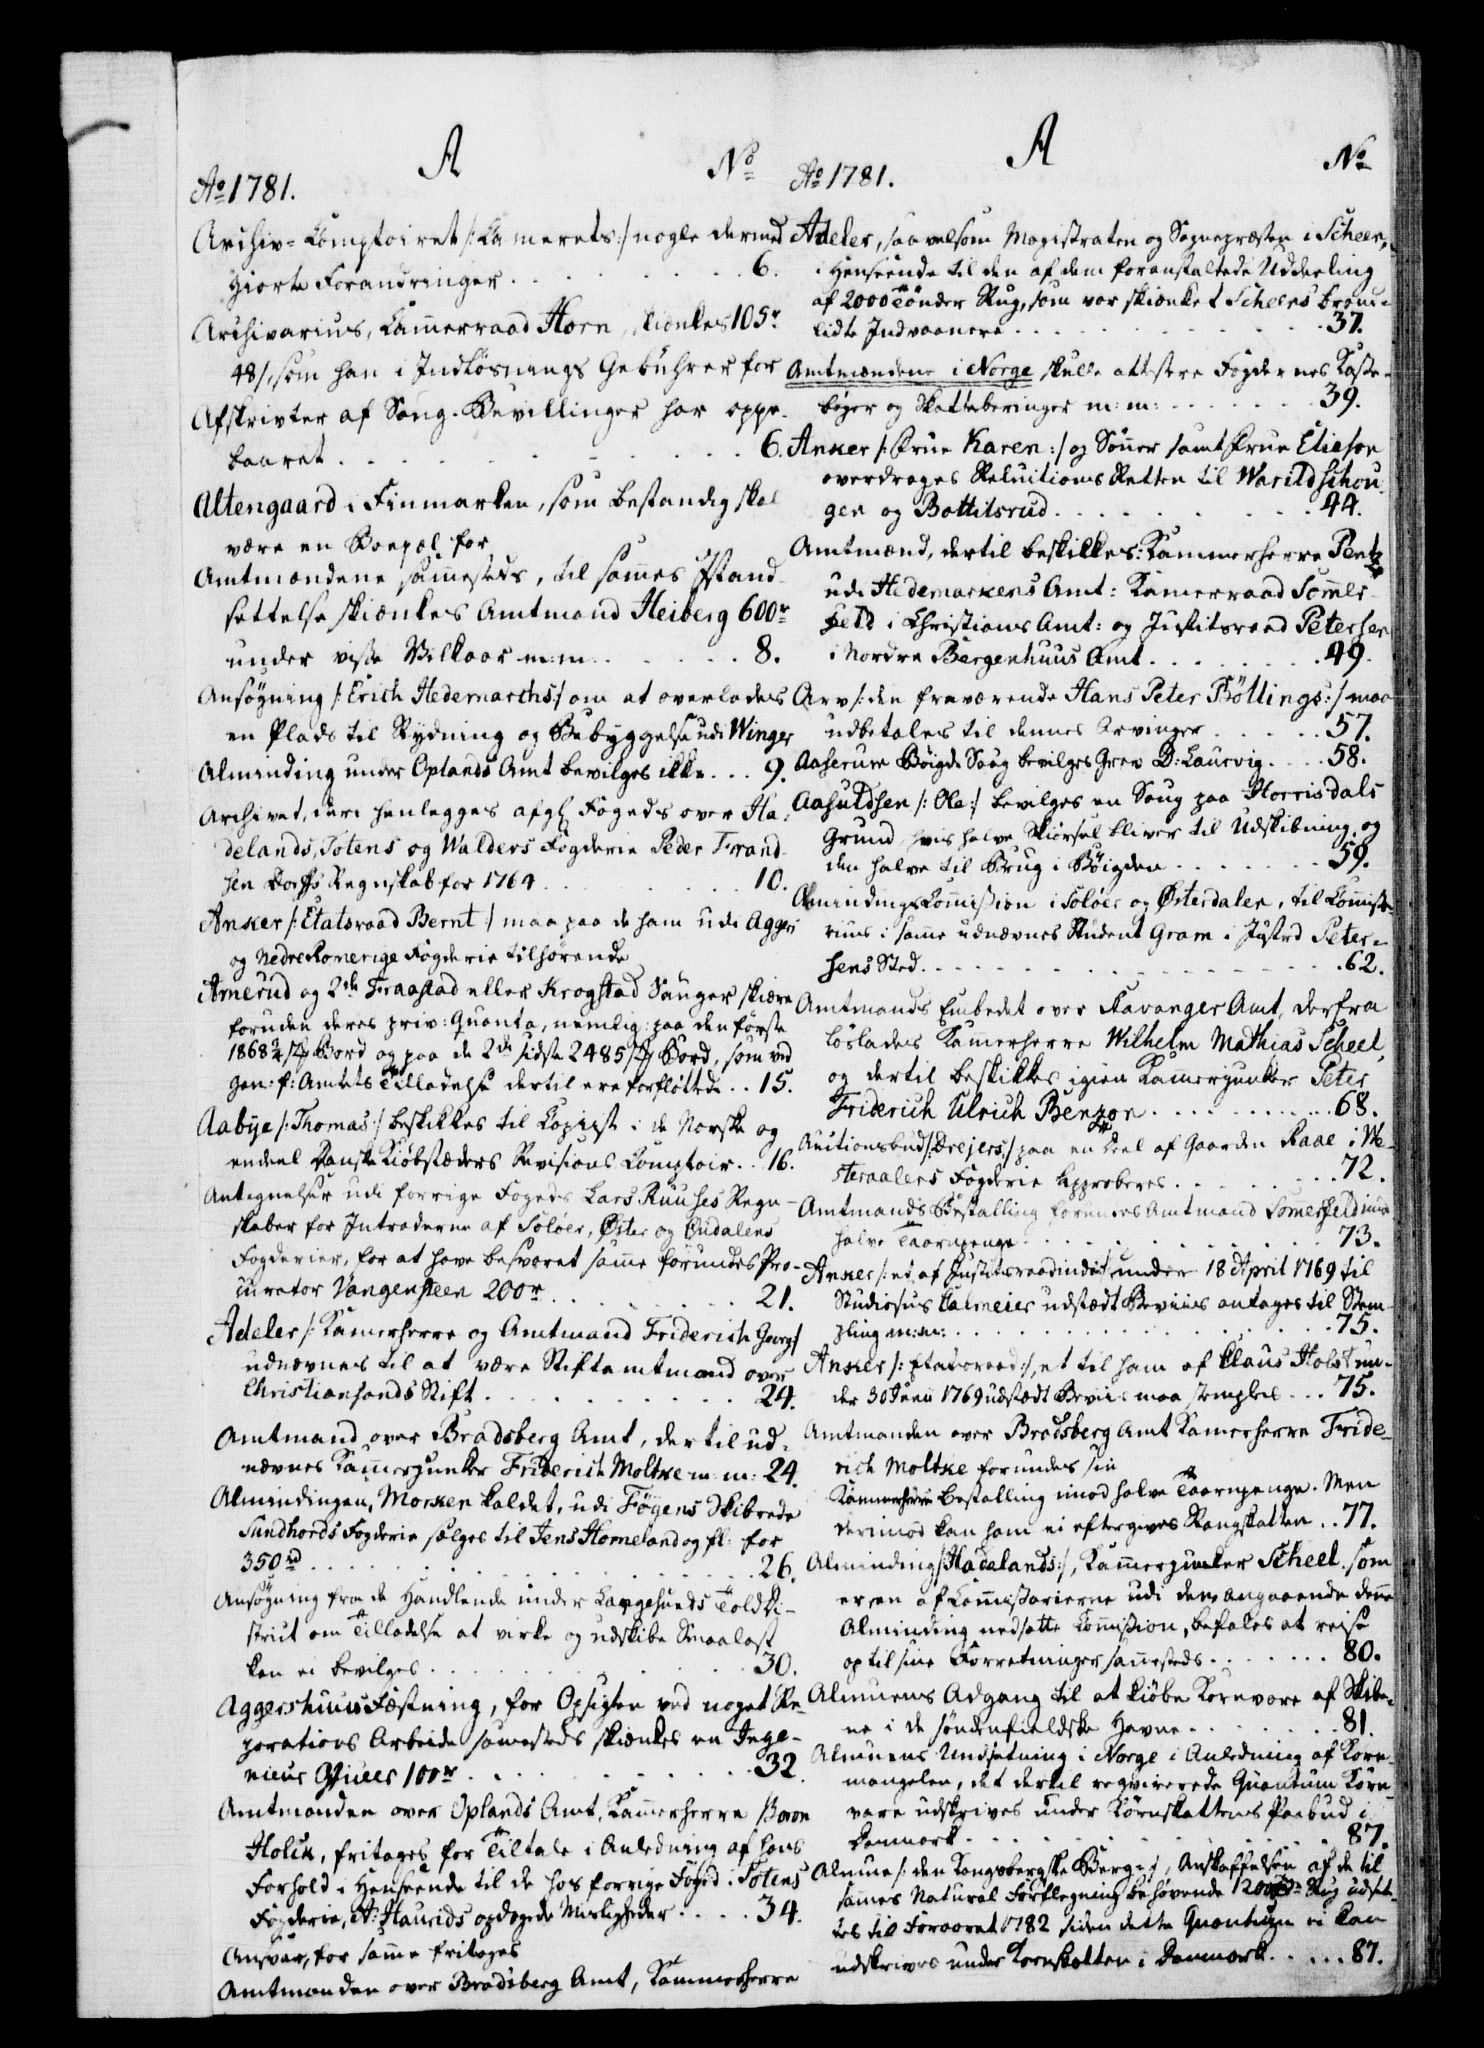 A No
Ao 1781.
Archiv-Comptoiret /: Camerets :/ nogle dermed
giorte Forandringer . . . 6.
Archivarius, Camerraad Horn, skienkes 105 r
48 s, som han i Indløsnings Gebührer for
Afskrivter af Saug-Bevillinger har oppe-
baaret . . . 6.
Altengaard i Finmarken, som bestandig skal
være en Boepæl for
Amtmændene sammesteds, til sammes Istand-
settelse skiænkes Amtmand Heiberg 600 r
under visse Vilkaar m:m . . . 8.
Ansøgning /: Erich Hedemarchs :/ om at overlades
en Plads til Rydning og Bebyggelse udi Winger
Alminding under Oplands Amt bevilges ikke . . . 9.
Archivet, deri henlegges afg: Fogeds over Ha-
delands, Totens og Walders Fogderie Peder Frand-
sen Dorphs Regnskab for 1764 . . . 10.
Anker /: Etatsraad Bernt :/ maa paa de ham udi Agger
og Nedre Romerige Fogderie tilhørende
Amerud og 2de Fraastad eller Krogstad Sauger skiære
foruden deres priv: Quanta, nemlig: paa den første
1868 Bord og paa de 2de sidste 2485 Bord, som ved
Gen: f: Amtets Tilladelse dertil ere forfløttede . . 15.
Aabye /: Thomas :/ beskikkes til Copiist i de Norske og
endeel Danske Kiøbstæders Revisions Comptoir . . 16.
Antegnelser udi forrige Fogeds Lars Ruuses Regn-
skaber for Intraderne af Soløer, Øster og Oudalens
Fogderier, for at have besvaret samme forundes Pro-
curator Vangensteen 200 r . . . 21.
Adeler /: Kamerherre og Amtmand Friderich Georg :/
udnævnes til at være Stiftamtmand over
Christiansands Stift . . . 24.
Amtmand over Bradsberg Amt, dertil ud-
nævnes Kamerjunker Friderich Moltke m: m: 24.
Almindingen, Morken kaldet, udi Føyens Skibrede
Sundhords Fogderie sælges til Jens Homeland og fl: for
350 rd . . . 26.
Ansøgning fra de Handlende under Langesunds Toldi-
strict om Tilladelse at virke og udskibe Smaalast
kan ei bevilges . . . 30.
Aggershuus Fæstning, for Opsigten ved noget Re-
parations Arbeide sammesteds skiænkes en Inge-
nieur Officer 100 r . . . 32
Amtmanden over Oplands Amt, Kamerherre Baron
Holck, fritages for Tiltale i Anledning af hans
Forhold i Henseende til de hos forrige Foged i Totens
Fogderie, A: Haurids opdagede Misligheder . . . 34.
Ansvar, for samme fritages
Amtmanden over Bradsberg Amt, Kammerherre
A No
Ao 1781.
Adeler, saavelsom Magistraten og Sognepræsten i Scheen,
i Henseende til den af dem foranstaltede Uddeeling
af 2000 Tønder Rug, som var skiænket Scheens brand-
lidte Indvaanere . . . 37.
Amtmændene i Norge skulle attestere Fogdernes Kasse-
bøger og Skattebøringer m: m: . . . 39.
Anker /: Frue Karen :/ og Sønner samt Frue Elieson
overdrages Reluitions Retten til Warildschou-
gen og Bottilsrud . . . 44.
Amtmænd, dertil beskikkes: Kammerherre Pentz
udi Hedemarkens Amt: Kamerraad Sommer-
feld i Christians Amt: og Justitsraad Petersen
i Nordre Bergenhuus Amt . . . 49.
Arv /: den fraværende Hans Peter Bøllings :/ maa
udbetales til dennes Arvinger . . . 57.
Aaserum Bøigde Saug bevilges Grev D: Laurvig . . . 58.
Aasuldsen /: Ole :/ bevilges en Saug paa Horrisdals
Grund hvis halve Skiørsel bliver til Udskibning, og
den halve til Brug i Bøigden . . . 59.
Almindings Commission i Soløer og Østerdalen, til Commissa-
rius i samme udnævnes Student Gram i Justrd Peter-
sens Sted . . . 62.
Amtmands Embedet over Stavanger Amt, derfra
løslades Kammerherre Wilhelm Mathias Scheel,
og dertil beskikkes igien Kammerjunker Peter
Friderich Ulrich Benzon . . . 68.
Auctionsbud /: Drejers :/ paa en Deel af Gaarden Raae i We-
steraalens Fogderie approberes . . . 72.
Amtmands Bestalling forundes Amtmand Sommerfeld imod
halve Taarnpenge . . . 73.
Anker /: et af Justitsraadinde :/ under 18 April 1769 til
Studiosus Calmeier udstædt Beviis antages til Stem-
pling m:m: . . . 75.
Anker /: Etatsraad :/, et til ham af Claus Holst un-
der 30 Junii 1769 udstædt Beviis maa stemples . . . 75.
Amtmanden over Bradsberg Amt Kamerherre Fride-
rich Moltke forundes sin
Kammerherre Bestalling imod halve Taarnpenge. Men
derimod kan ham ei eftergives Rangskatten . . 77.
Alminding /: Hadelands :/, Kammerjunker Scheel, som
er en af Commissarierne udi den angaaende denne
Alminding nedsatte Commission, befales at reise
op til sine Forretninger sammesteds . . . 80.
Almuens Adgang til at kiøbe Kornvare af Skibe-
ne i de søndenfieldske Havne . . . 81.
Almuens Undsetning i Norge i Anledning af Korn-
mangelen, det dertil reqvirerede Quantum Korn-
vare udskrives under Kornskattens Paabud i
Danmark . . . 87.
Almue /: den Kongsbergske Berg :/, Anskaffelsen af de til
sammes Natural Forflegning behøvende Rug udset-
tes til Foraaret 1782 siden dette Quantum ei kan
udskrives under Kornskatten i Danmark . . . 87.